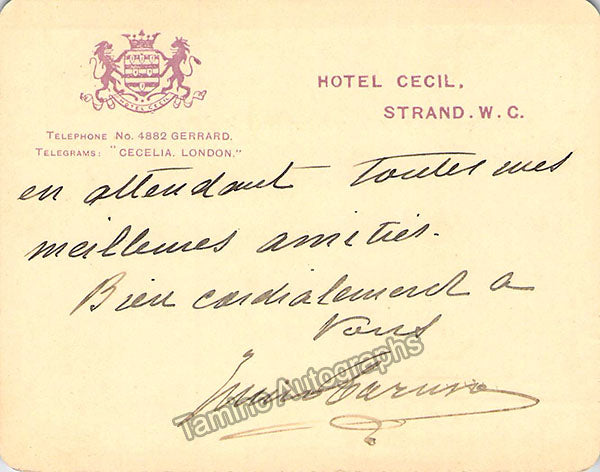 HOTEL CECIL
HOTEL CECIL,
STRAND. W. C.
TELEPHONE No. 4882 GERRARD.
TELEGRAMS: "CECELIA. LONDON."
en attendant toutes mes
meilleures amitiés.
Bien cordialement a
Vous
Enrico Caruso
Tamino Autographs